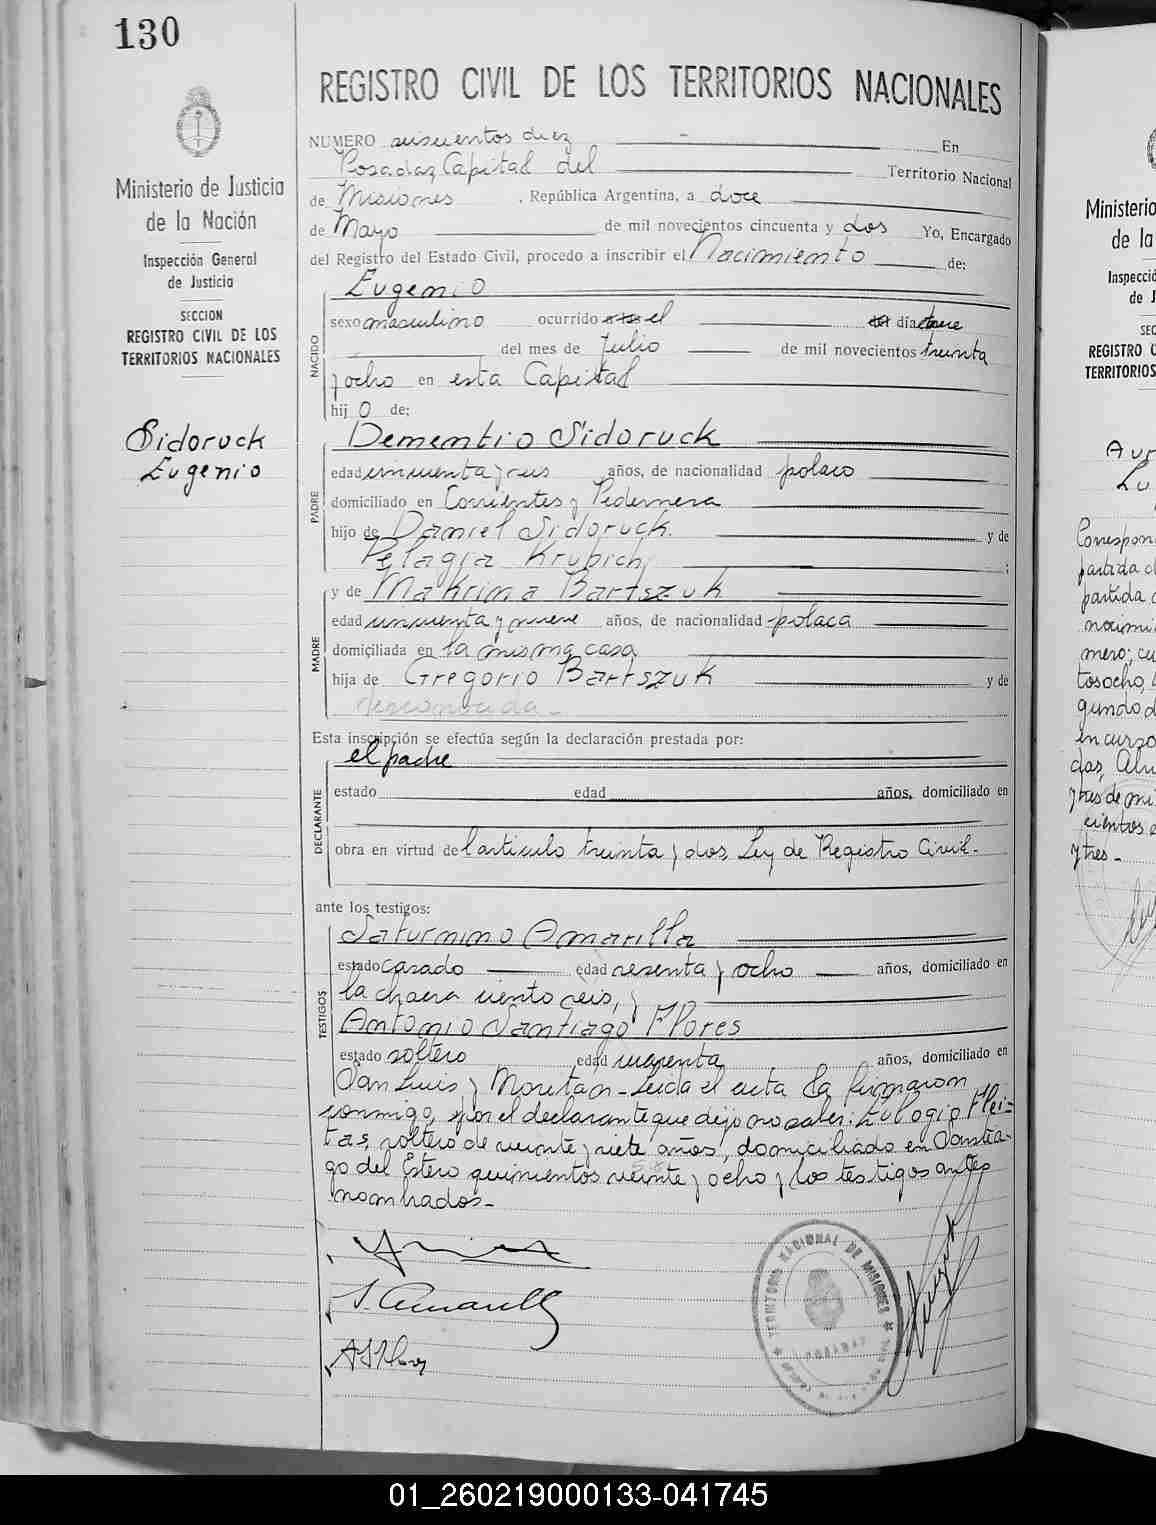 130
Ministerio de Justicia
de la Nación
Inspección General
de Justicia
SECCION
REGISTRO CIVIL DE LOS
TERRITORIOS NACIONALES
Sidoruck
Eugenio
REGISTRO CIVIL DE LOS TERRITORIOS NACIONALES
NUMERO seiscientos diez En
Posadas Capital del Territorio Nacional
de Misiones , República Argentina, a doce
de Mayo de mil novecientos cincuenta y dos Yo, Encargado
del Registro del Estado Civil, procedo a inscribir el Nacimiento de:
NACIDO
Eugenio
sexo masculino ocurrido el día trece
del mes de Julio de mil novecientos treinta
y ocho en esta Capital
hij o de:
PADRE
Dementio Sidoruck
edad cincuenta y seis años, de nacionalidad polaco
domiciliado en Corrientes y Pedernera
hijo de Daniel Sidoruck y de
Pelagja Krupich ;
MADRE
y de Makrina Bartszuk
edad cincuenta y nueve años, de nacionalidad polaca
domiciliada en la misma casa
hija de Gregorio Bartszuk y de
desconocida-
Esta inscripción se efectúa según la declaración prestada por:
DECLARANTE
el padre
estado edad años, domiciliado en
obra en virtud del articulo treinta y dos, Ley de Registro Civil-
ante los testigos:
TESTIGOS
Saturnino Amarilla
estado casado edad sesenta y ocho años, domiciliado en
la chacra ciento seis, y
Antonio Santiago Flores
estado soltero edad cuarenta años, domiciliado en
San Luis y Moritan-Leida el acta la firmaron
conmigo, y por el declarante que dijo no saber: Eulogio Flei-
tas, soltero de veinte y siete años, domiciliado en Santia-
go del Estero quinientos veinte y ocho y los testigos antes
nombrados-
S. Amarilla
A S Flores
TERRITORIO NACIONAL DE MISIONES
POSADAS
Ministerio
de la
Inspecció
de J
SEC
REGISTRO C
TERRITORIOS
Aur
Lu
Correspon
partida d
partida
mero; cu
tosocho,
gundo d
en curso
das, Abri
y tres de mi
cientos
y tres-
01_260219000133-041745